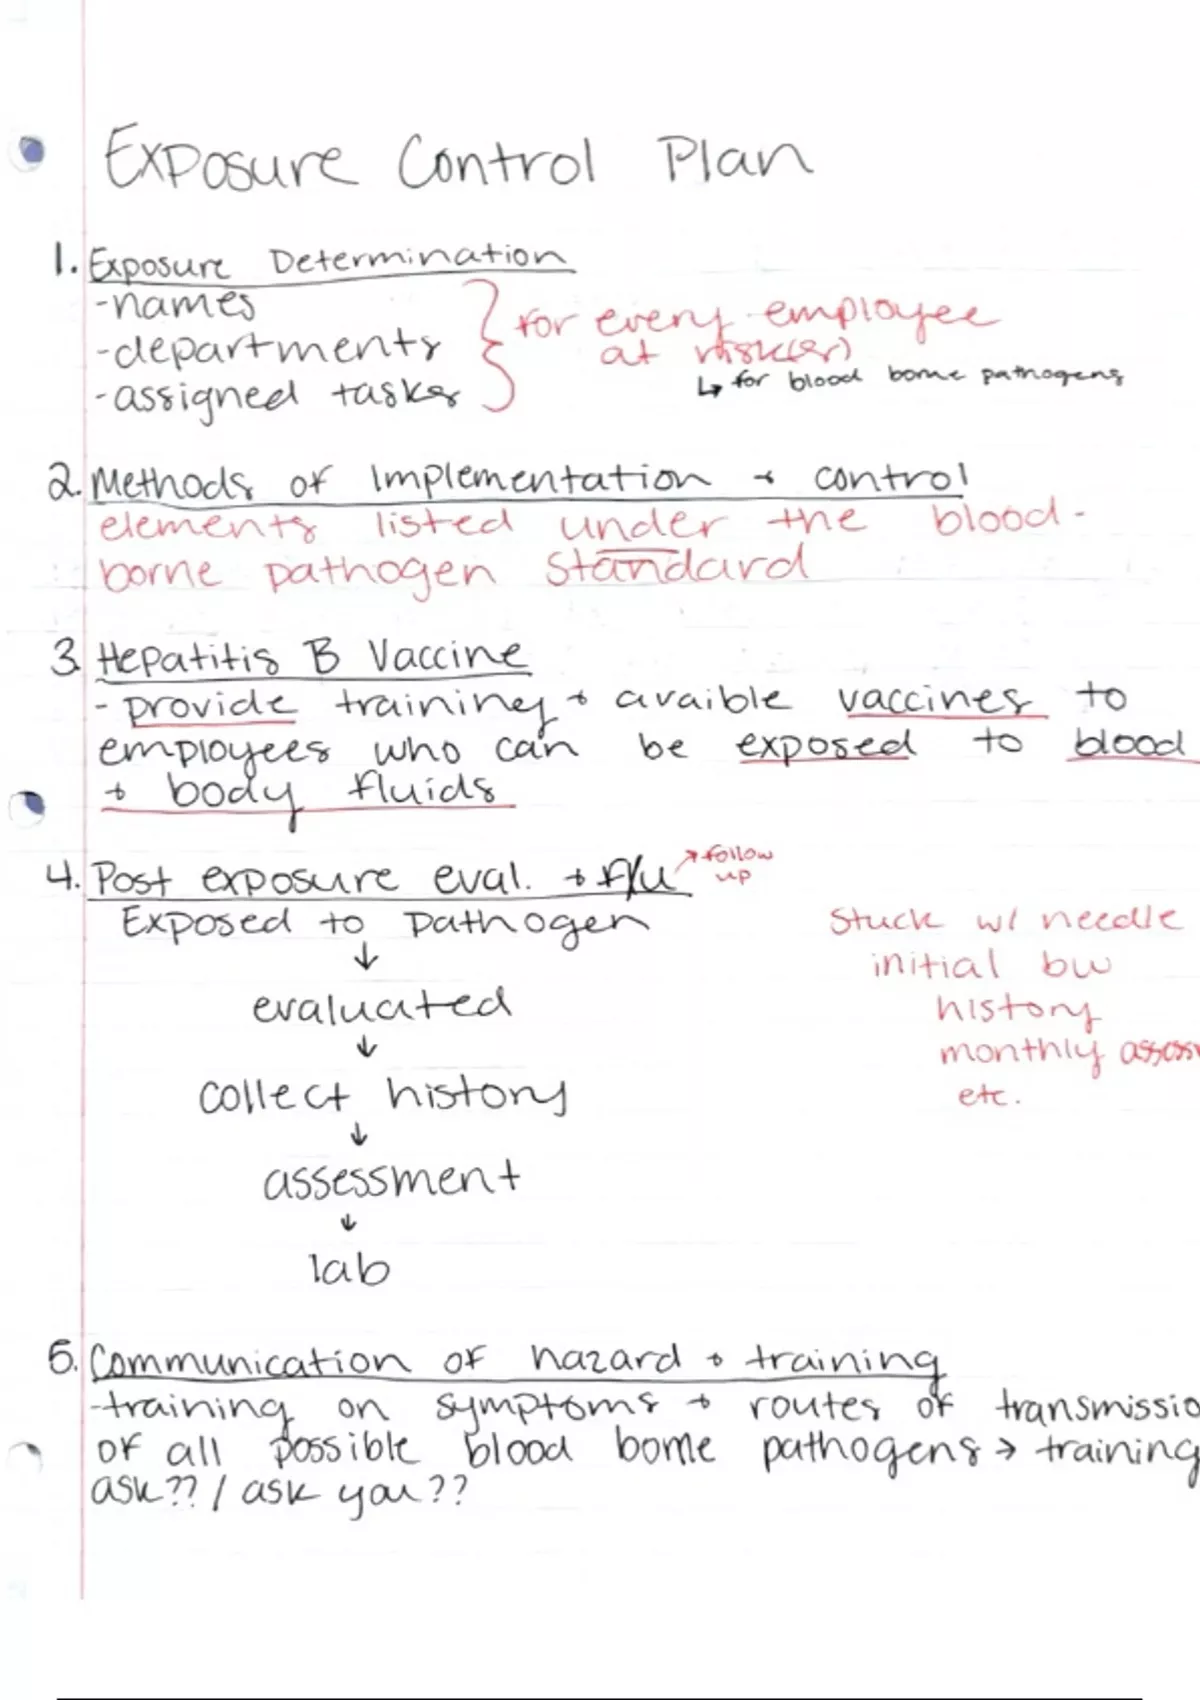 Exposure Control Plan
1. Exposure Determination
-names
-departments
-assigned tasks
for every employee
at risk(er)
↳ for blood borne pathogens
2. Methods of Implementation + control
elements listed under the blood-
borne pathogen standard
3. Hepatitis B Vaccine
- provide training + avaible vaccines to
employees who can be exposed to blood
+ body fluids
4. Post exposure eval. + f/u
↗ follow
up
Exposed to pathogen
↓
evaluated
↓
collect history
↓
assessment
↓
lab
Stuck w/ needle
initial bw
history
monthly assess
etc.
5. Communication of hazard + training
-training on symptoms + routes of transmissio
of all possible blood borne pathogens → training
ask?? / ask you??